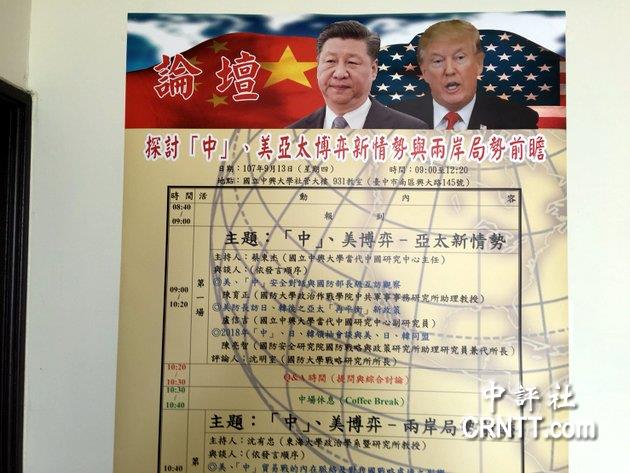 論壇
探討「中」、美亞太博弈新情勢與兩岸局勢前瞻
日期：107年9月13日（星期四） 時間：09:00至12:20
地點：國立中興大學社管大樓 931教室（臺中市南區興大路145號）
時間 活動內容
08:40/09:00 報到
主題：「中」、美博弈－亞太新情勢
09:00 10:20 第一場
主持人：蔡東杰（國立中興大學當代中國研究中心主任）
與談人：（依發言順序）
◎美、「中」安全對話與國防部長級互訪觀察
陳育正（國防大學政治作戰學院中共軍事事務研究所助理教授）
◎美防長訪日、韓後之亞太「再平衡」新政策
盧信吉（國立中興大學當代中國研究中心副研究員）
◎2018年「中」、日、韓領袖會談與美、日、韓同盟
陳亮智（國防安全研究院國防戰略與政策研究所助理研究員兼代所長）
評論人：沈明室（國防大學戰略研究所所長）
10:20/10:30 Q&A時間（提問與綜合討論）
10:30/10:40 中場休息（Coffee Break）
主題：「中」、美博弈－兩岸局勢
主持人：沈有忠（東海大學政治學系暨研究所教授）
10:40 第
與談人：（依發言順序）
◎美、「中」貿易戰的內在脈絡及對
中評社
CRNTT.com